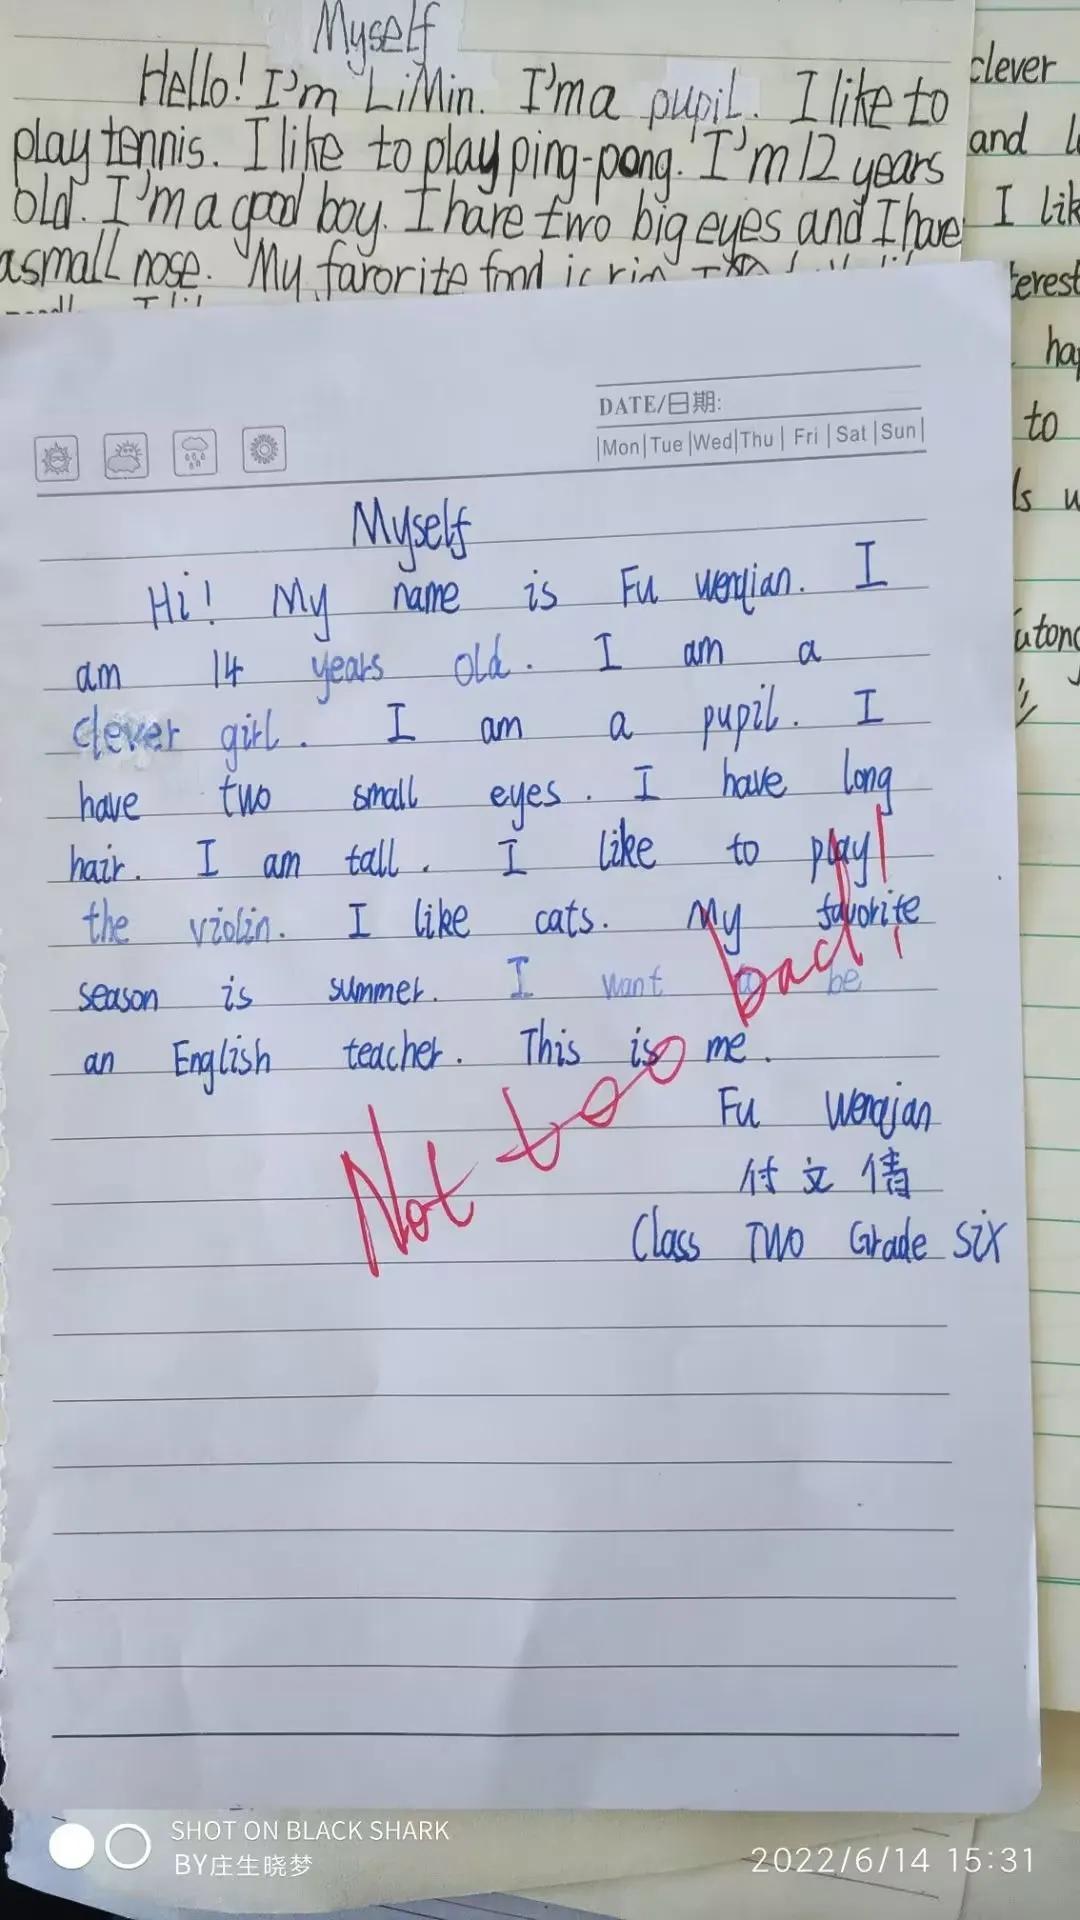 Myself
Hello! I'm LiMin. I'm a pupil. I like to
play tennis. I like to play ping-pong. I'm 12 years
old. I'm a good boy. I hare two big eyes and I have
a small nose. My farorite food is
clever
and
I lik
terest
hap
to
ls w
utong
DATE/日期:
Mon Tue Wed Thu Fri Sat Sun
Myself
Hi! My name is Fu wenqian. I
am 14 years old. I am a
clever girl. I am a pupil. I
have two small eyes. I have long
hair. I am tall. I like to play
the violin. I like cats. My favorite
season is summer. I want to be
an English teacher. This is me.
Not too bad!
Fu Wenqian
付文倩
Class Two Grade six
SHOT ON BLACK SHARK
BY庄生晓梦
2022/6/14 15:31